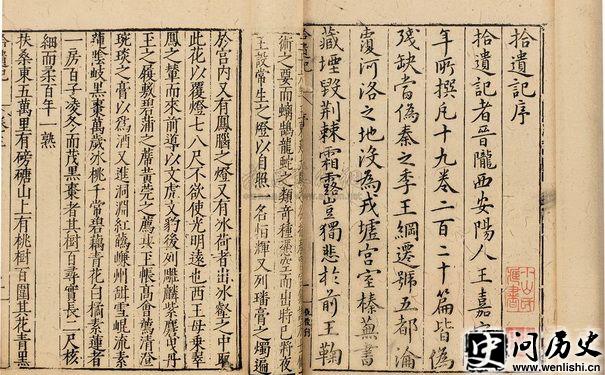 拾遺記序
拾遺記者晉隴西安陽人王嘉字
年所撰凡十九卷二百二十篇皆為
殘缺當偽秦之季王綱遷號五都淪
覆河洛之地沒為戎墟宮室榛蕪書
藏堙毀荊棘霜露豈獨悲於前王鞠
拾遺記
術之要而螭鵠龍蛇之類奇種憑空而出特已將夜
王設常生之燈以自照一名恒輝又列璠膏之燭遍
於宮內又有鳳腦之燈又有冰荷者出冰壑之中取
此花以覆燈七八尺不欲使光明遠也西王母乘翠
鳳之輦而來前導以文虎文豹後列雕麟紫麏曳丹
玉之履敷碧蒲之席黃莞之薦共玉帳高會薦清澄
琬琰之膏以為酒又進洞淵紅蘤嵊州甜雪崐流素
蓮陰岐黑棗萬歲冰桃千常碧藕青花白橘素蓮者
一房百子凌冬而茂黑棗者其樹百尋實長二尺核
細而柔百年一熟
扶桑東五萬里有磅磄山上有桃樹百圍其花青黑
拾遺記
问历史
www.wenlishi.cn